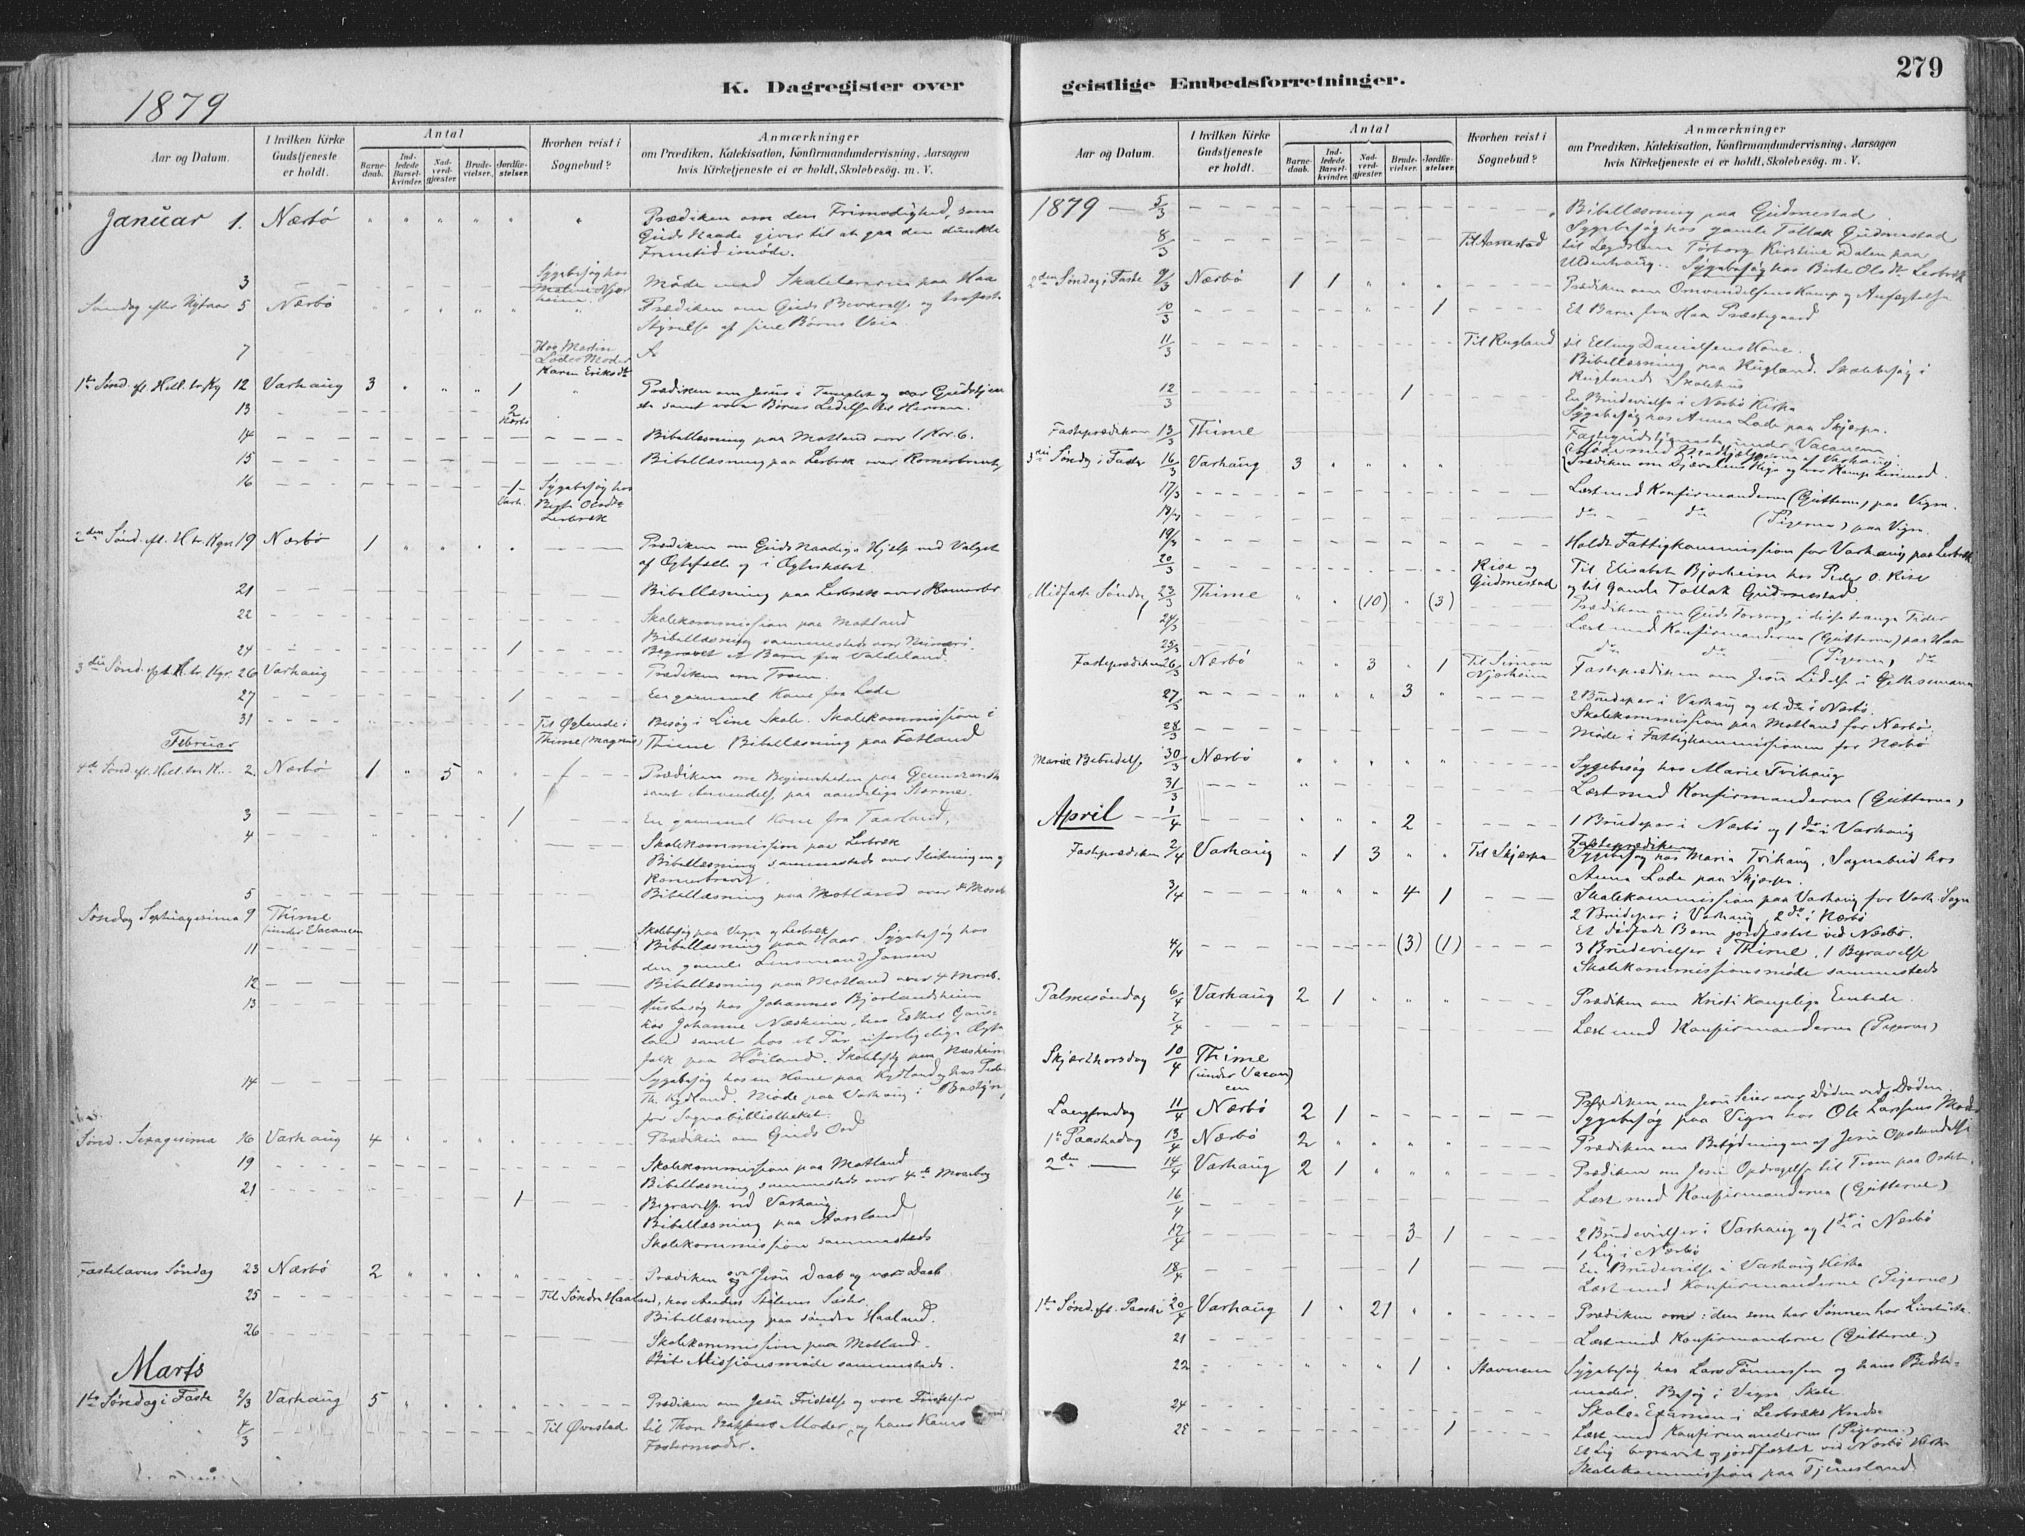 K. Dagregister over
1879
Aar og Datum.
I hvilken Kirke Gudstjeneste er holdt.
Antal
Barnedaab.
Indledede Barselkvinder.
Nadverdgjæster.
Brudevielser.
Jordfæstelser.
Hvorhen reist i Sognebud?
Anmærkninger
om Prædiken, Katekisation, Konfirmandundervisning, Aarsagen
hvis Kirketjeneste ei er holdt, Skolebesøg. m. V.
Januar 1. Nærbø Prædiken om den Frimodighed, som
Guds Naade giver til at gaa den dunkle
Fremtid imøde.
3 Sygebesøg hos Møde med Skolelærerne paa Haa
Søndag efter Nytaar 5 Nærbø Prædiken om Guds Bevarelse og
Styrelse af sine Børns Veie
7
Karen Eriksdtr
1ste Sønd. ef. Hell. tr. Kg 12 Varhaug 3 1 Prædiken om Jesus i Templet og vor
samt vore Børns Ledelse til Herren.
13 2 Nærbø
14 Bibellæsning paa Motland over 1 Kor. 6.
15 Bibellæsning paa Lerbræk over Romerbrevet
16 1 Varh. Sygebesøg hos
Lerbræk
2den Sønd. eft. H. tr. Kgr 19 Nærbø 1 Prædiken om Guds Naadige Hjelp ved Valget
af Ægtefælle og i Ægteskabet.
21 Bibellæsning paa Lerbræk over Romerbr
22 Skolekommission paa Motland
Bibellæsning sammesteds over
24 1 Begravet et Barn fra Valdeland.
3die Sønd eft H. tr. Kgr. 26 Varhaug Prædiken om Troen
27 1 En gammel Kone fra Lode
31 Til Øglende i Besøg i Line Skole. Skolekommission i
Thime (Magnus) Thime Bibellæsning paa Fotland
Februar
4de Sønd. eft. Hell. tr. K. 2. Nærbø 1 5 Prædiken om Begivenheden paa
samt Anvendelse paa aandelige Storme.
3 1 En gammel Kone fra Taarland,
4 Skolekommission paa Lerbræk
Bibellæsning sammesteds over Slutningen og
Romerbrevet.
5 Bibellæsning paa Motland over 4 Moseb
Søndag Septuagesima 9 Thime
(under Vacancen
Skolebesøg paa Vigre og Lerbræk
11 Bibellæsning paa Haar. Sygebesøg hos
den gamle Lensmand Jonsen
12 Bibellæsning paa Motland over 4 Moseb.
13 Husbesøg hos Johannes Bjorlandsheim
hos Johanne Næsheim, hos Esther
land samt hos et Par uforligelige Ægte
folk paa Høiland. Skolebesøg paa Næsheim
14 Sygebesøg hos en Kone paa Kydland og hos Peder
Th. Kydland. Møde paa Varhaug i Bestyr
for Sognebibliotheket.
Sønd. Sexagesima 16 Varhaug 4 Prædiken om Guds Ord
19 Skolekommission paa Motland
Bibellæsning sammesteds over 4de Mosebog
21 1 Begravelse ved Varhaug
Bibellæsning paa Aarsland
Skolekommission sammesteds
Fastelavns Søndag 23 Nærbø 2 Prædiken over Jesu Daab og vor Daab
25 Til Søndre Haaland, hos
Bibellæsning paa søndre Haaland.
26 Skolekommission paa Motland.
Missionsmøde sammesteds.
Marts
1ste Søndag i Faste 2/3 Varhaug 5 Prædiken om Jesu Fristelse og vore Fristelser
4/3 Til Øvestad til Thore Moder, og hans Kones
Fostermoder.
279
geistlige Embedsforretninger.
Aar og Datum.
I hvilken Kirke Gudstjeneste er holdt.
Antal
Barnedaab.
Indledede Barselkvinder.
Nadverdgjæster.
Brudevielser.
Jordfæstelser.
Hvorhen reist i Sognebud?
Anmærkninger
om Prædiken, Katekisation, Konfirmandundervisning, Aarsagen
hvis Kirketjeneste ei er holdt, Skolebesøg. m. V.
1879 5/3 Bibellæsning paa Gudmestad
8/3 Til Aanestad Sygebesøg hos gamle Tollak Gudmestad
til Torborg Kirstine Dalen paa
Odenhaug. Sygebesøg hos Olsdtr Lerbræk
2den Søndag i Faste 9/3 Nærbø 1 1 Prædiken om Omvendelsens Kamp og Anfægtelse
10/3 1 Et Barn fra Haa Præstegaard
11/3 Til Rugland til Elling Danielsens Kone.
Bibellæsning paa Rugland. Skolebesøg i
Ruglands Skolehus
12/3 1 En Brudevielse i Nærbø Kirke
Sygebesøg hos Anna Lode paa Skjærpe.
Fasteprædiken 13/3 Thime Fastegudstjeneste under Vacancen
Møde med Medhjælperne af Varhaug
3die Søndag i Faste 16/3 Varhaug 3 Prædiken om Djævelens Rige og vor Kamp derimod.
17/3 Læst med Konfirmanderne (Gutterne) paa Vigre.
18/3 do do (Pigerne) paa Vigre.
19/3 Holdt Fattigkommission for Varhaug paa Lerbræk
20/3 Rise og Gudmestad Til Elisabet Bjorheim hos Peder O. Rise
og til Gamle Tollak Gudmestad.
Midfaste Søndag 23/3 Thime (10) (3) Prædiken om Guds Forsorg i disse trange Tider
24/3 Læst med Konfirmanderne (Gutterne) paa Haa
25/3 do do (Pigerne) do
Fasteprædiken 26/3 Nærbø 3 1 Til Simon Njærheim Fasteprædiken om Jesu Lidelse i Gethsemane
27/3 3 2 Brudepar i Varhaug og et do i Nærbø.
28/3 Skolekommission paa Motland for Nærbø.
Møde i Fattigkommissionen for Nærbø
Mariæ Bebudelse 30/3 Nærbø Sygebesøg hos Marie Tvihaug
31/3 Læst med Konfirmanderne (Gutterne)
April 1/4 2 1 Brudepar i Nærbø og 1 do i Varhaug
Fasteprædiken
Fasteprædiken 2/4 Varhaug 1 3 Til Skjærpe Sygebesøg hos Maria Tvihaug, Sognebud hos
Anna Lode paa Skjærpe.
3/4 4 1 Skolekommission paa Varhaug for Varh. Sogn
2 Brudepar i Varhaug, 2 do i Nærbø
Et dødfødt Barn jordfæstet ved Nærbø.
4/4 (3) (1) 3 Brudevielser i Thime, 1 Begravelse
Skolekommissionsmøde sammesteds
Palmesøndag 6/4 Varhaug 2 1 Prædiken om Kristi kongelige Embede.
7/4 Læst med Konfirmanderne (Pigerne)
Skjærthorsdag 10/4 Thime
(under Vacancen
Langfredag 11/4 Nærbø 2 1 Prædiken om Jesu Seier over Døden ved Døden
Sygebesøg paa Vigre hos Ole Larsens Moder
1ste Paaskedag 13/4 Nærbø 2 Prædiken om Betydningen af Jesu Opstandelse
2den 14/4 Varhaug 2 1 Prædiken om Jesu Opdragelse til Troen paa
16/4 Læst med Konfirmanderne (Gutterne)
17/4 3 1 2 Brudevielser i Varhaug og 1 do i Nærbø
1 Lig i Nærbø
18/4 1 En Brudevielse i Varhaug Kirke
Læst med Konfirmanderne (Pigerne)
1ste Sønd. eft. Paaske 20/4 Varhaug 1 21 Prædiken om: den som har Sønnen har Livet
21 Læst med Konfirmanderne (Gutterne.)
22 1 Stavnem Sygebesøg hos Lars Tønnessen og hans Bedste-
moder. Besøg i Vigre Skole.
24 Skole-Examen i Lerbræks Kreds
Læst med Konfirmanderne (Pigerne.)
25 1 Et Lig begravet og jordfæstet ved Nærbø Kirke
Skolekommission paa Tjemsland